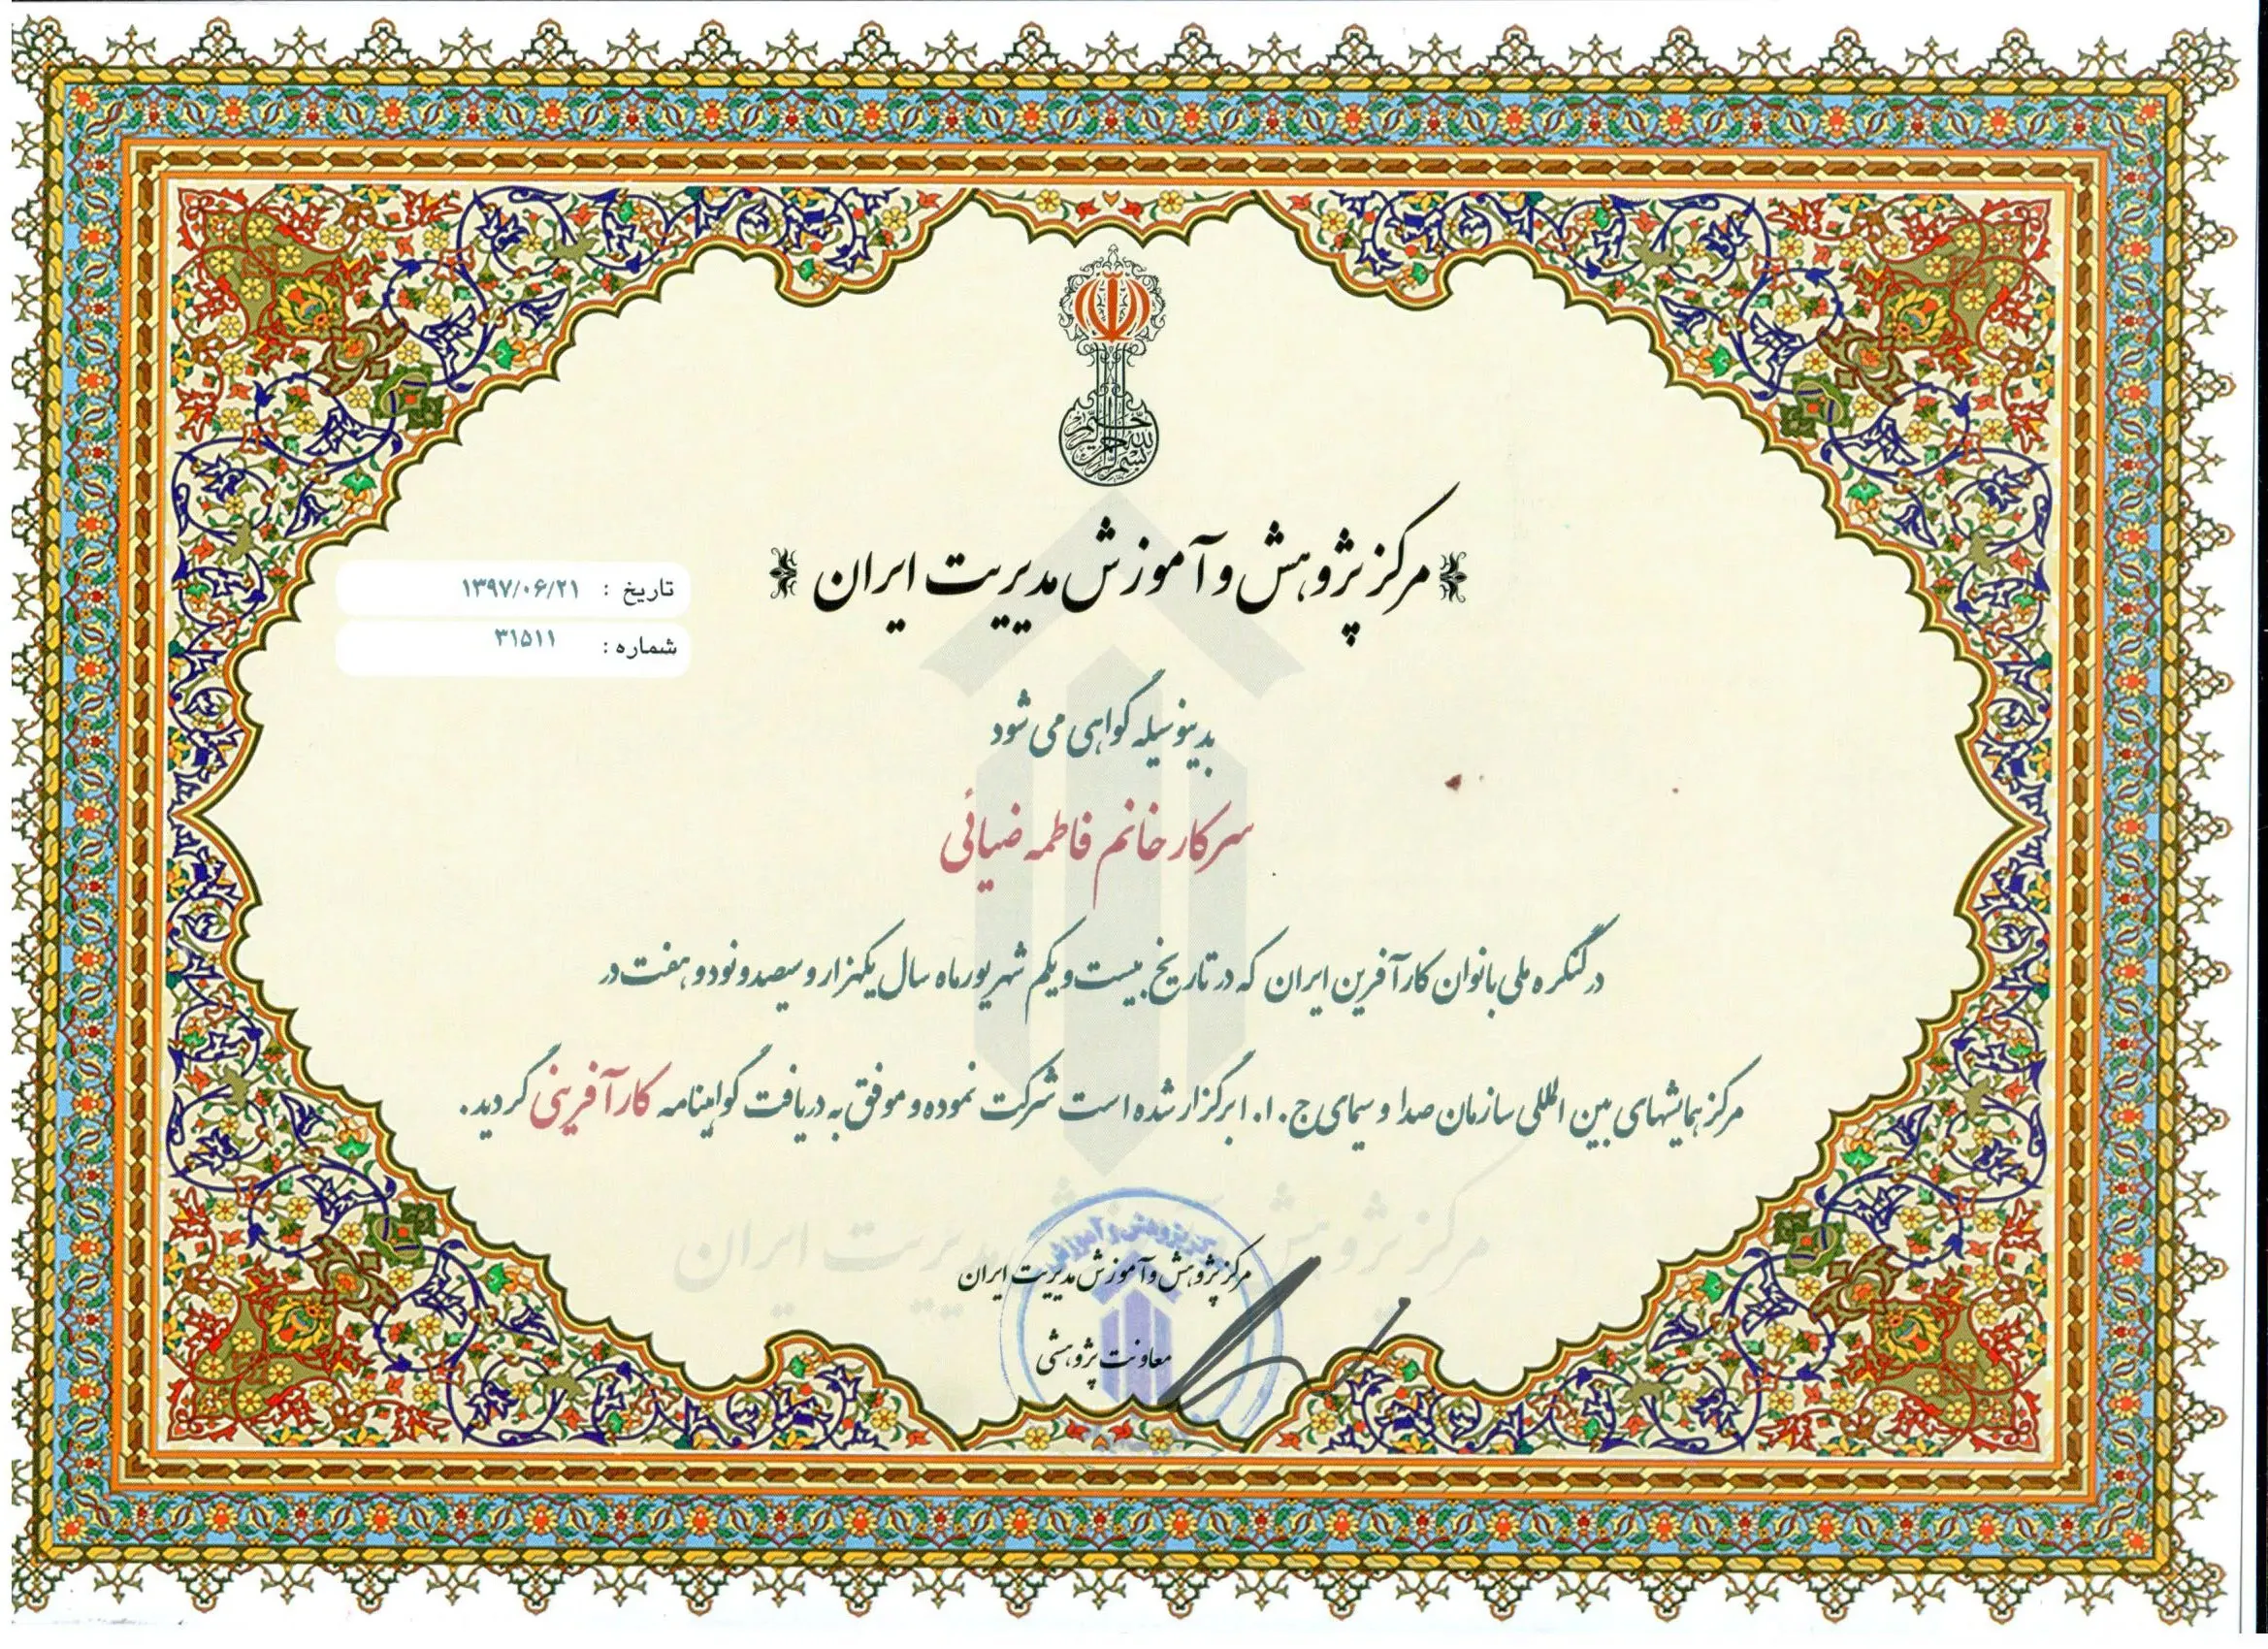 بسم الله الرحمن الرحیم
مرکز پژوهش و آموزش مدیریت ایران
تاریخ : ۱۳۹۷/۰۶/۲۱
شماره : ۳۱۵۱۱
بدینوسیله گواهی می شود
سرکار خانم فاطمه ضیائی
در کنگره ملی بانوان کارآفرین ایران که در تاریخ بیست و یکم شهریور ماه سال یکهزار و سیصد و نود و هفت در
مرکز همایشهای بین المللی سازمان صدا و سیمای ج.ا.ا برگزار شده است شرکت نموده و موفق به دریافت گواهینامه کارآفرینی گردید.
مرکز پژوهش و آموزش مدیریت ایران
مرکز پژوهش و آموزش
مرکز پژوهش و آموزش مدیریت ایران
معاونت پژوهشی